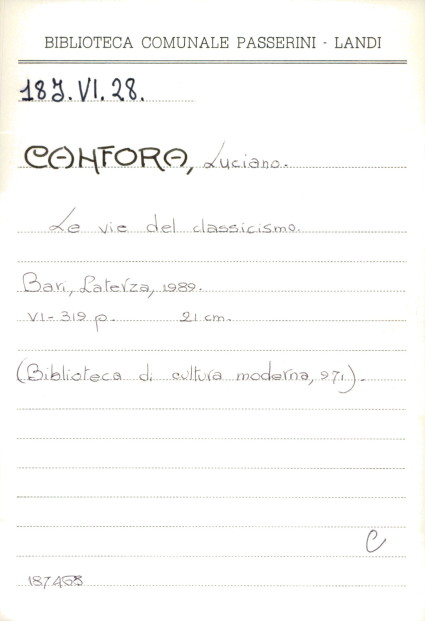 BIBLIOTECA COMUNALE PASSERINI - LANDI
18J.VI.28.
CANFORA, Luciano.
Le vie del classicismo.
Bari, Laterza, 1989.
VI-319 p. 21 cm.
(Biblioteca di cultura moderna, 971).
C